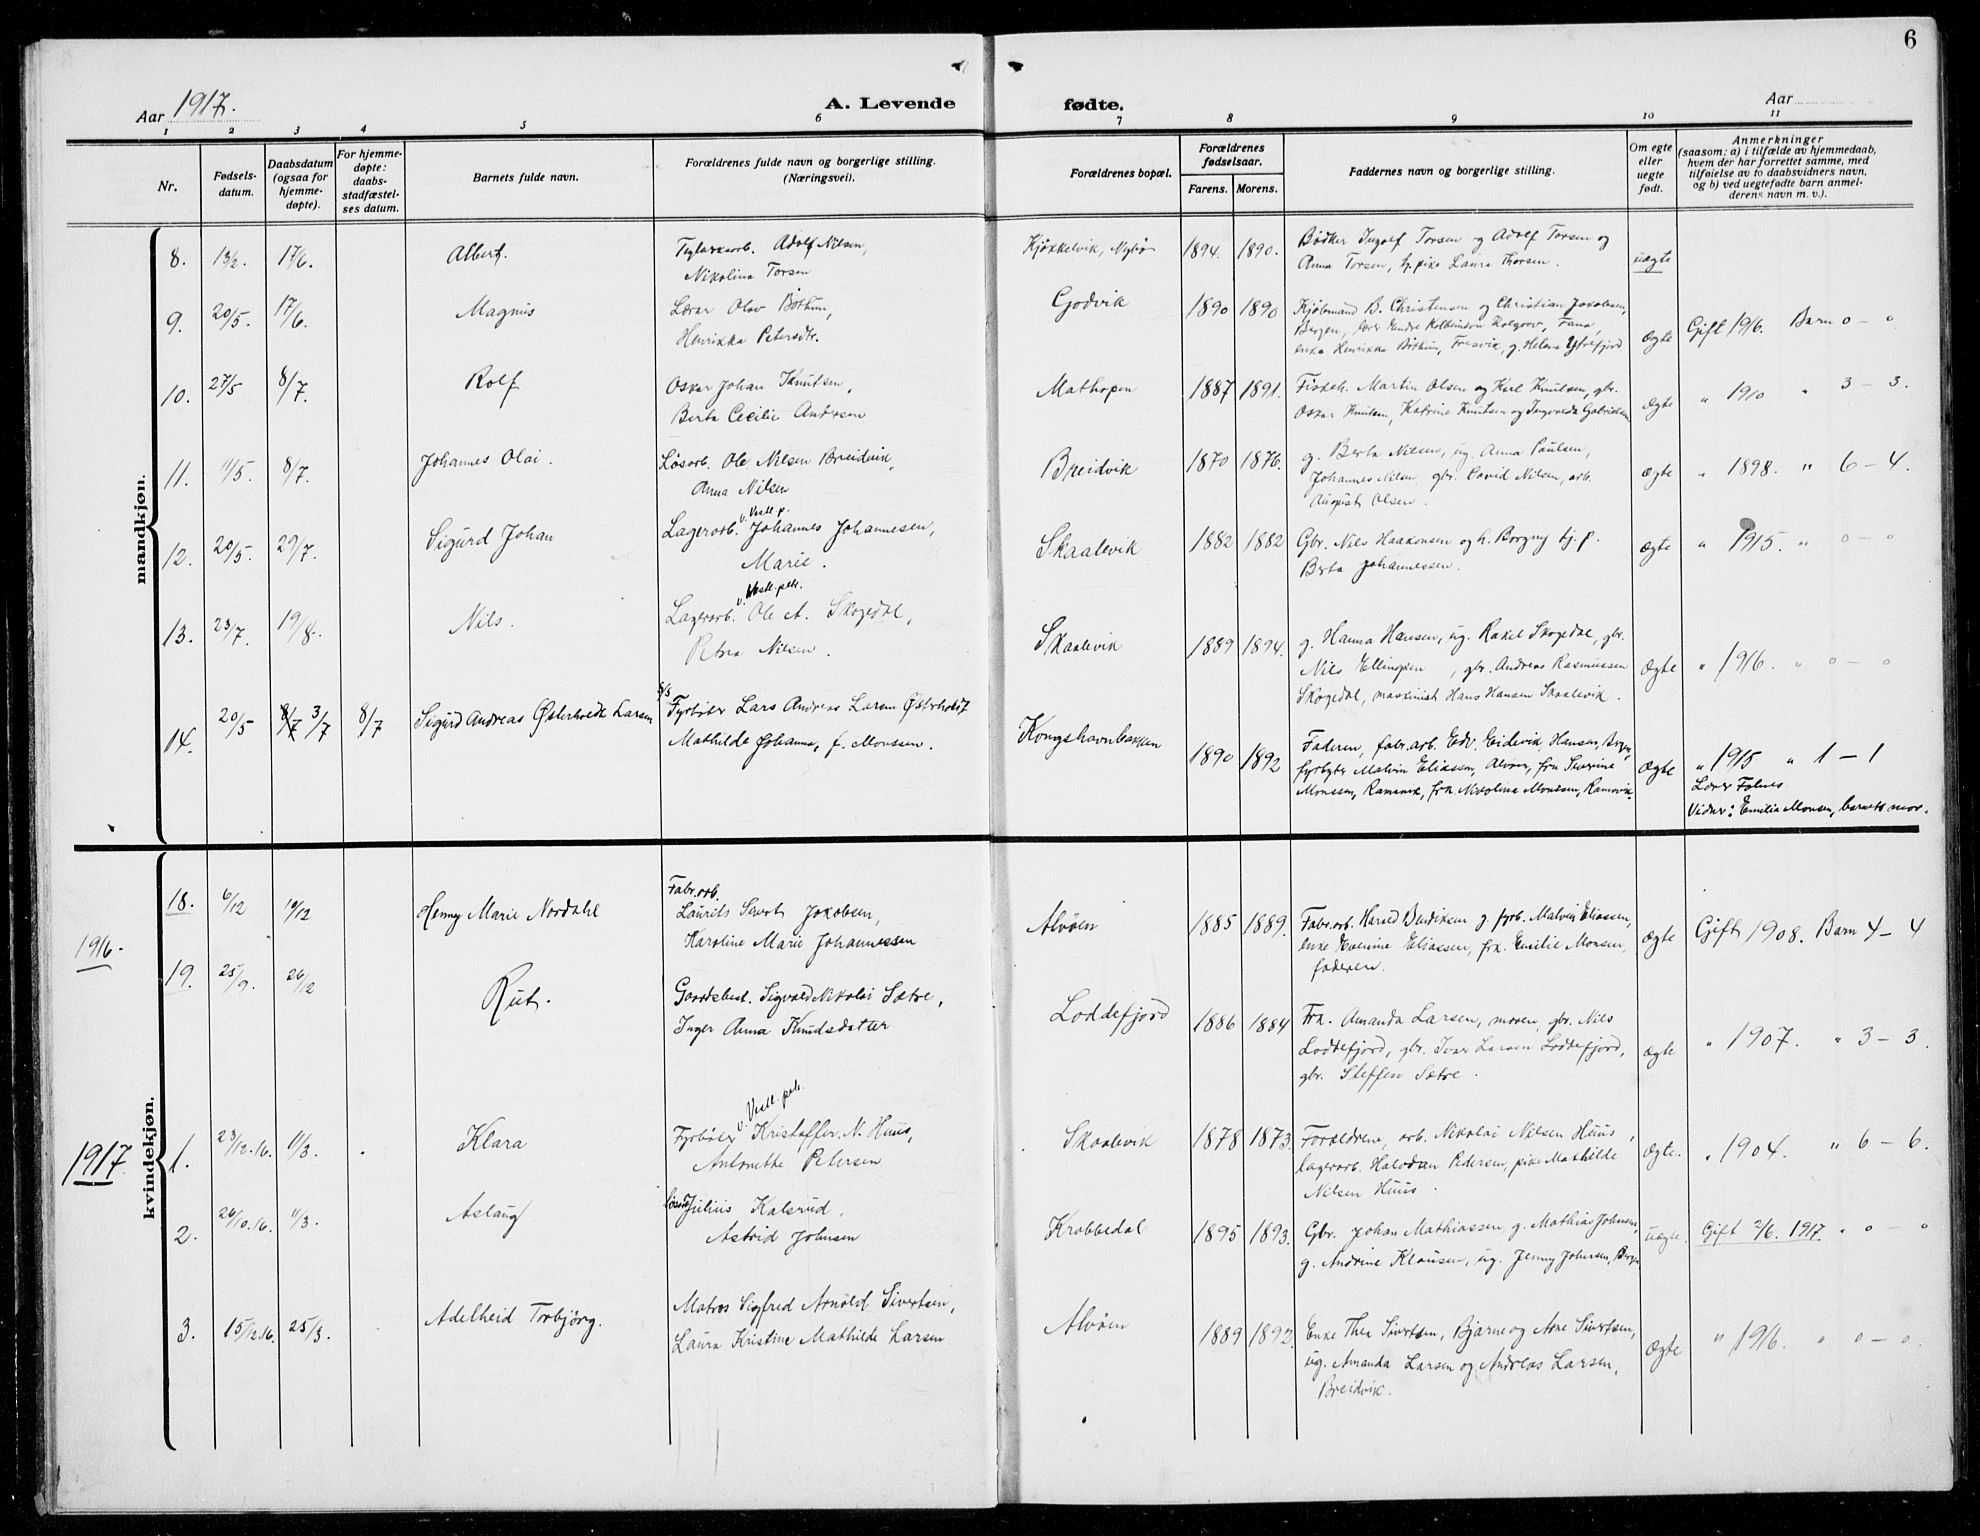 6
Aar 1917.
A. Levende
fødte.
Aar
1 2 3 4 5 6 7 8 9 10 11
Nr.
Fødsels-
datum.
Daabsdatum
(ogsaa for
hjemme-
døpte).
For hjemme-
døpte:
daabs-
stadfæstel-
ses datum.
Barnets fulde navn.
Forældrenes fulde navn og borgerlige stilling.
(Næringsvei).
Forældrenes bopæl.
Forældrenes
fødselsaar.
Farens. Morens.
Faddernes navn og borgerlige stilling.
Om egte
eller
uegte
født.
Anmerkninger
(saasom: a) i tilfælde av hjemmedaab,
hvem der har forrettet samme, med
tilføielse av to daabsvidners navn,
og b) ved uegtefødte barn anmel-
derens navn m. v.).
mandkjøn.
8. 13/2. 17/6. Albert.
Adolf Nilsen,
Nikolina Torsen
Kjøkkelvik, 1894. 1890.
Bødker Ingolf Torsen og Adolf Torsen og
Anna Torsen, tj. pike Laura Thorsen.
uægte
9. 20/5. 17/6. Magnus
Lærer Olav Bøthun,
Henrikka Petersdtr.
Godvik 1890 1890
Kjøbmand B. Christensen og Christian Jakobsen,
Bergen, lærer Endre Fana,
enke Henrikka Bøthun, Fresvik, g. Helena Ytrefjord
ægte
Gift 1916. Barn 0 – 0
10. 27/5 8/7. Rolf
Oskar Johan Knutsen,
Berta Cecilie Andersen
Mathopen 1887 1891.
Fiskeh. Martin Olsen og Karl Knutsen, gbr.
Oskar Knutsen, Katrine Knutsen og Ingvalda Gabrielsen
ægte
" 1910 " 3 – 3.
11. 11/5. 8/7. Johannes Olai.
Løsarb. Ole Nilsen Breidvik,
Anna Nilsen
Breidvik 1870 1876.
g. Berta Nilsen, ug. Anna Paulsen,
Johannes Nilsen, gbr. David Nilsen, arb.
August Olsen.
ægte
" 1898. " 6 – 4.
12. 20/5. 29/7. Sigurd Johan
v. Vestl. p.
Lagerarb. Johannes Johannesen,
Marie.
Skaalevik 1882 1882
Gbr. Nils Haakonsen og h. Borgny tj. p.
Berta Johannessen.
ægte
" 1915. " 0 – 0
13. 23/7. 19/8. Nils.
v. Vestl. petr.
Lagerarb. Ole A. Skogedal,
Petra Nilsen.
Skaalevik 1889 1894.
g. Hanna Hansen, ug. Rakel Skogedal, gbr.
Nils Ellingsen, gbr. Andreas Rasmussen
Skogedal, maskinist Hans Hansen Skaalevik.
ægte
" 1916. " 0 – 0
14. 20/5 8/7 3/7 8/7 Sigurd Andreas Østerholdt Larsen
S/S
Fyrbøter Lars Andreas Larsen Østerholdt
Mathilde Johanna, f. Monssen.
Kongshavnbakken 1890 1892
Faderen, fabr.arb. Edv. Eidevik Hansen, Bergen,
fyrbøter Malvin Eliassen, Alvøen, frk Severine
Monssen, Ramsvik, frk Nikolina Monssen, Ramsvik.
ægte
" 1915 " 1 – 1
Lærer Folnes
Vidner: Emilia Monsen, barnets mor.
kvindekjøn.
1916.
18. 6/12 10/12 Henny Marie Nordahl
Fabr.arb.
Laurits Severt Jakobsen,
Karoline Marie Johannessen
Alvøen 1885 1889.
Fabr.arb. Harald Bendiksen g. fyrb. Malvin Eliassen,
enke Eliassen, frk. Emilie Monsen,
faderen.
ægte
Gift 1908. Barn 4 – 4
19. 25/9. 26/12 Rut.
Gaardsbest. Sigvald Nikolai Sætre,
Inger Anna Knudsdatter
Loddefjord 1886 1884
Frk. Amanda Larsen, moren, gbr. Nils
Loddefjord, gbr. Ivar Larsen Loddefjord,
gbr. Steffen Sætre.
ægte
" 1907. " 3 – 3.
1917.
1. 23/12.16. 11/3. Klara
v. Vestl. petr.
Fyrbøter Kristoffer N. Huus,
Antonette Petersen
Skaalevik 1878 1873.
Forældrene, arb. Nikolai Nilsen Huus,
lagerarb. Halvdan Pedersen, pike Mathilde
Nilsen Huus.
ægte.
" 1904. " 6 – 6.
2. 26/10.16. 11/3. Aslaug
Julius Kalsrud,
Astrid Johnsen
Krabbedal 1895 1893.
Gbr. Johan Mathiassen, g. Mathias Johnsen,
g. Andrine Klausen, ug. Jenny Johnsen, Bergen
uægte.
Gift 2/6. 1917. " 0 – 0
3. 15/12.16. 25/3. Adelheid Torbjørg.
Matros Sigfred Arnold Sivertsen,
Laura Kristine Mathilde Larsen
Alvøen 1889 1892.
Enke Thea Sivertsen, Bjarne og Arne Sivertsen,
ug. Amanda Larsen og Andreas Larsen,
Breidvik.
ægte
" 1916. " 0 – 0